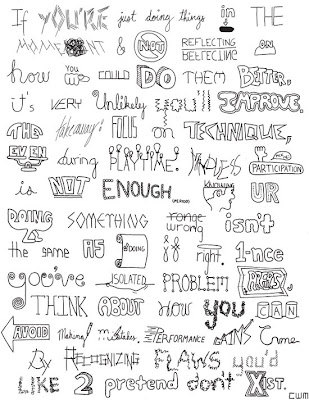 If YOU'RE just doing things in THE
MOMENT & NOT REFLECTING ON
how YOU COULD DO THEM BETTER,
it's VERY Unlikely you'll IMPROVE.
THE takeaway: FOCUS on TECHNIQUE,
EVEN during PLAYTIME. MINDLESS PARTICIPATION
is NOT ENOUGH (PERIOD) KNOWING UR
DOING SOMETHING wrong isn't
the same AS DOING it right. 1-nce
you've ISOLATED PROBLEM AREAS,
THINK ABOUT how you CAN
AVOID Making Mistakes. PERFORMANCE GAINS Come
By RECOGNIZING FLAWS you'd
LIKE 2 pretend don't XIST.
CWM